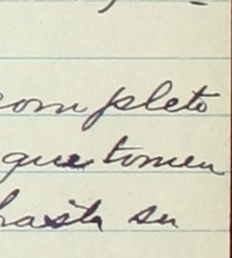 completo
que tomen
hasta su